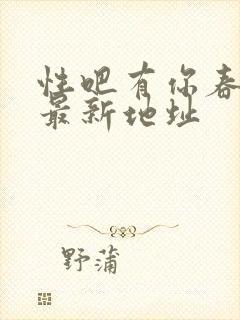 性吧有你春
最新地址
野蒲